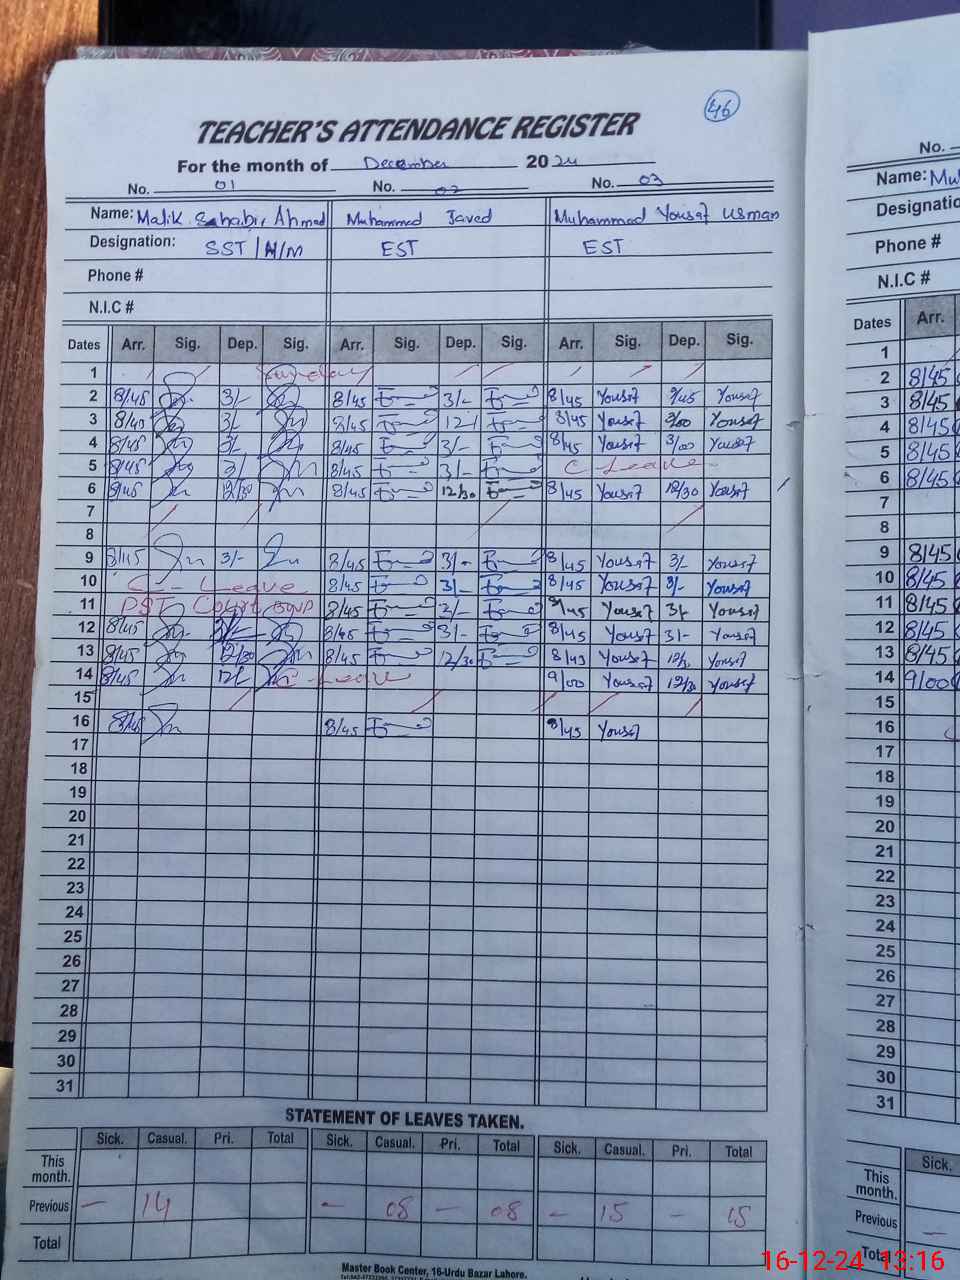 46
TEACHER'S ATTENDANCE REGISTER
For the month of December 2024
No. 01 No. 02 No. 03
Name: Malik Sahabir Ahmad Muhammad Javed Muhammad Yousaf Usman
Designation: SST/H/M EST EST
Phone #
N.I.C #
Dates Arr. Sig. Dep. Sig. Arr. Sig. Dep. Sig. Arr. Sig. Dep. Sig.
1 Sunday
2 8/45 3/- 8/45 3/- 8/45 Yousaf Yousaf
3 8/40 3/- 8/45 12/ 8/45 Yousaf 3/00 Yousaf
4 8/45 3/- 8/45 3/- 8/45 Yousaf 3/00 Yousaf
5 8/45 3/ 8/45 3/- C-Leave
6 8/45 12/30 8/45 12/30 8/45 Yousaf 12/30 Yousaf
7
8
9 8/45 3/- 8/45 3/- 8/45 Yousaf 3/- Yousaf
10 C-Leave 8/45 3/- 8/45 Yousaf 3/- Yousaf
11 PST Court 8/45 2/- 8/45 Yousaf 3/- Yousaf
12 8/45 3/- 8/45 3/- 8/45 Yousaf 3/- Yousaf
13 8/45 12/30 8/45 12/30 8/45 Yousaf Yousaf
14 8/45 C-Leave 9/00 Yousaf 12/30 Yousaf
15
16 8/45 8/45 8/45 Yousaf
17
18
19
20
21
22
23
24
25
26
27
28
29
30
31
STATEMENT OF LEAVES TAKEN.
Sick. Casual. Pri. Total Sick. Casual. Pri. Total Sick. Casual. Pri. Total
This month.
Previous - 14 - 08 - 08 - 15 - 15
Total
Master Book Center, 16-Urdu Bazar Lahore.
No.
Name: Mu
Designatio
Phone #
N.I.C #
Dates Arr.
1
2 8/45
3 8/45
4 8/45
5 8/45
6 8/45
7
8
9 8/45
10 8/45
11 8/45
12 8/45
13 8/45
14 9/00
15
16
17
18
19
20
21
22
23
24
25
26
27
28
29
30
31
Sick.
This month.
Previous -
Total
16-12-24 13:16